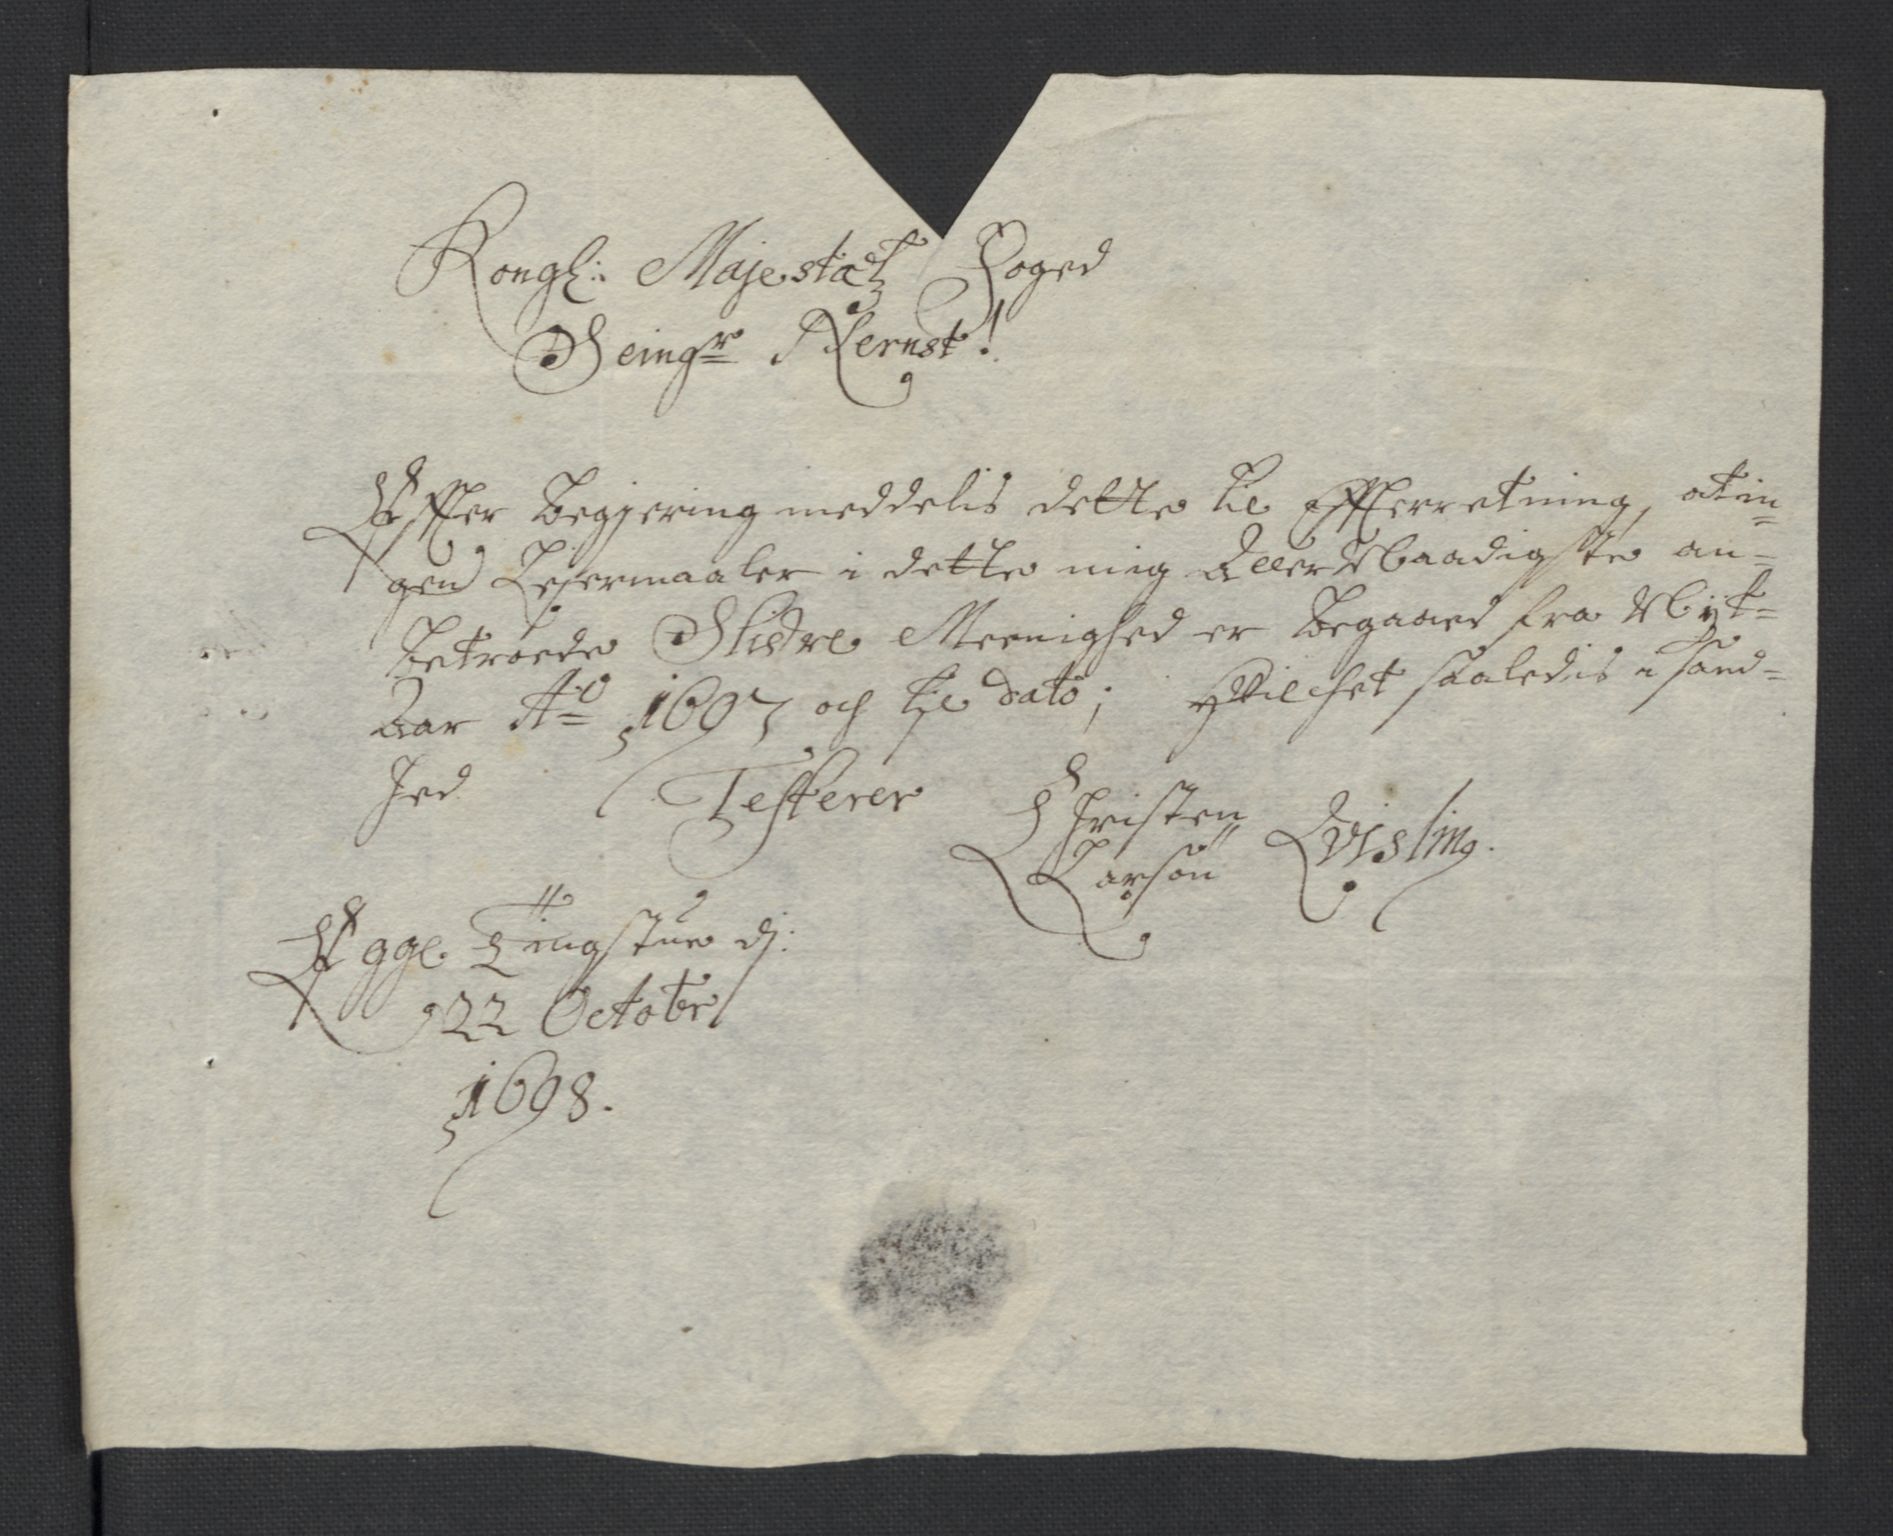 Kongl: Majestætz Foged
Seingr Hiernst!
Effter begjering meddelis dette til Effterretning, at in=
gen Leyermaaler i dette mig Allernaadigste an=
betroede Slidre Meenighed er begaaed fra Nyt=
Aar Ao 1697 och til dato; Hvilchet saaledis i sand=
hed Testerer Christen Qvisling.
Larsön
Egge Tingstue dj:
22 Octobr
1698.